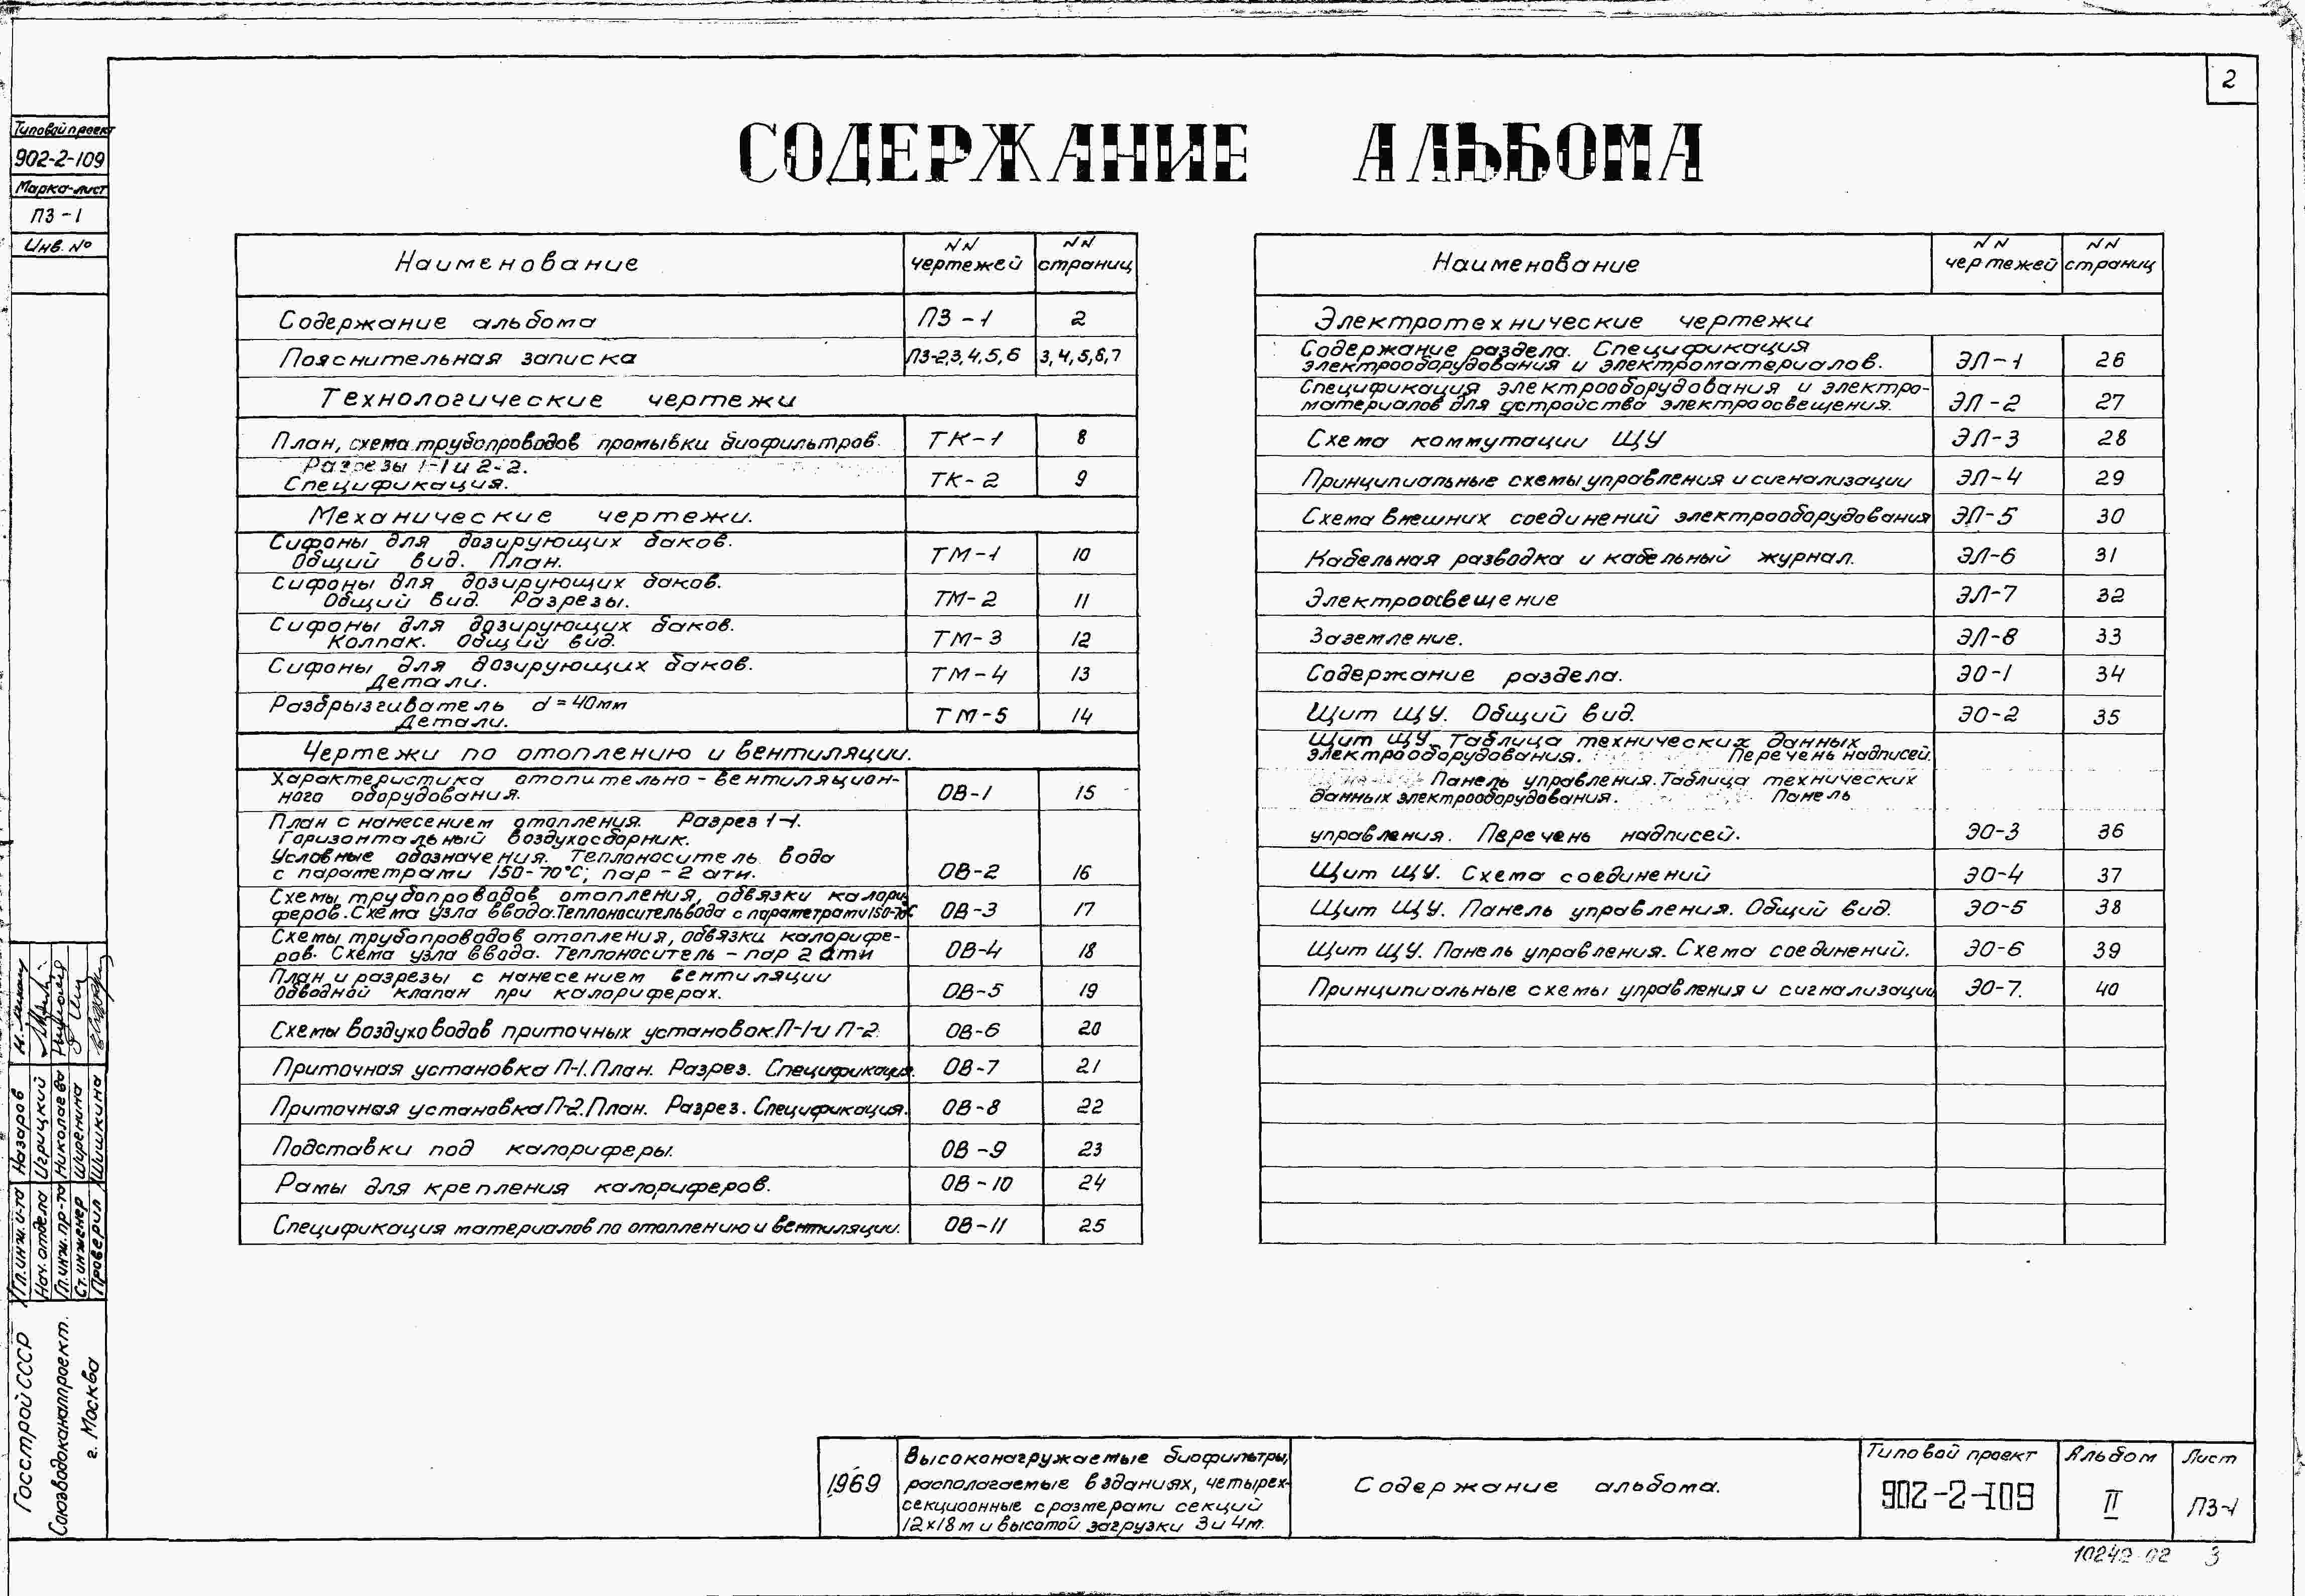 2
Типовой проект
902-2-109
Марка-лист
ПЗ-1
Инв. №
СОДЕРЖАНИЕ АЛЬБОМА
Наименование
NN чертежей
NN страниц
Содержание альбома ПЗ-1 2
Пояснительная записка ПЗ-2,3,4,5,6 3,4,5,6,7
Технологические чертежи
План, схема трубопроводов промывки биофильтров. ТК-1 8
Разрезы 1-1 и 2-2.
Спецификация. ТК-2 9
Механические чертежи.
Сифоны для дозирующих баков.
Общий вид. План. ТМ-1 10
Сифоны для дозирующих баков.
Общий вид. Разрезы. ТМ-2 11
Сифоны для дозирующих баков.
Колпак. Общий вид. ТМ-3 12
Сифоны для дозирующих баков.
Детали. ТМ-4 13
Разбрызгиватель d=40мм
Детали. ТМ-5 14
Чертежи по отоплению и вентиляции.
Характеристика отопительно-вентиляцион-
ного оборудования. ОВ-1 15
План с нанесением отопления. Разрез 1-1.
Горизонтальный воздухосборник.
Условные обозначения. Теплоноситель вода
с параметрами 150-70°С; пар-2 ати. ОВ-2 16
Схемы трубопроводов отопления, обвязки калори-
феров. Схема узла ввода. Теплоноситель вода с параметрами 150-70°С ОВ-3 17
Схемы трубопроводов отопления, обвязки калорифе-
ров. Схема узла ввода. Теплоноситель - пар 2 ати ОВ-4 18
План и разрезы с нанесением вентиляции
Обводной клапан при калориферах. ОВ-5 19
Схемы воздуховодов приточных установок П-1 и П-2. ОВ-6 20
Приточная установка П-1. План. Разрез. Спецификация. ОВ-7 21
Приточная установка П-2. План. Разрез. Спецификация. ОВ-8 22
Подставки под калориферы. ОВ-9 23
Рамы для крепления калориферов. ОВ-10 24
Спецификация материалов по отоплению и вентиляции. ОВ-11 25
Наименование
NN чертежей
NN страниц
Электротехнические чертежи
Содержание раздела. Спецификация
электрооборудования и электроматериалов. ЭЛ-1 26
Спецификация электрооборудования и электро-
материалов для устройства электроосвещения. ЭЛ-2 27
Схема коммутации ЩУ ЭЛ-3 28
Принципиальные схемы управления и сигнализации ЭЛ-4 29
Схема внешних соединений электрооборудования ЭЛ-5 30
Кабельная разводка и кабельный журнал. ЭЛ-6 31
Электроосвещение ЭЛ-7 32
Заземление. ЭЛ-8 33
Содержание раздела. ЭО-1 34
Щит ЩУ. Общий вид. ЭО-2 35
Щит ЩУ. Таблица технических данных
электрооборудования. Перечень надписей.
Панель управления. Таблица технических
данных электрооборудования. Панель
управления. Перечень надписей. ЭО-3 36
Щит ЩУ. Схема соединений ЭО-4 37
Щит ЩУ. Панель управления. Общий вид. ЭО-5 38
Щит ЩУ. Панель управления. Схема соединений. ЭО-6 39
Принципиальные схемы управления и сигнализации ЭО-7. 40
Гл. инж. и-та Назаров
Нач. отдела Игрицкий
Гл. инж. пр-та Николаева
Ст. инженер Шуренина
Проверил Шишкина
Госстрой СССР
Союзводоканалпроект.
г. Москва
1969
Высоконагружаемые биофильтры,
располагаемые в зданиях, четырех-
секционные с размерами секций
12х18 м и высотой загрузки 3 и 4м.
Содержание альбома.
Типовой проект
902-2-109
Альбом
II
Лист
ПЗ-1
10242-02 3